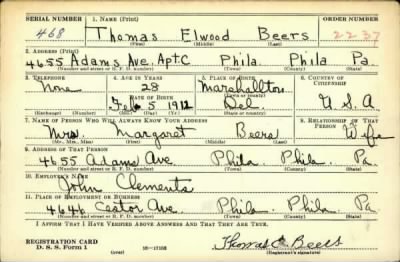 SERIAL NUMBER 1. NAME (Print) ORDER NUMBER
468 Thomas Elwood Beers 2237
(First) (Middle) (Last)
2. ADDRESS (Print)
4655 Adams Ave. Apt. C Phila Phila Pa.
(Number and street or R. F. D. number) (Town) (County) (State)
3. TELEPHONE 4. AGE IN YEARS 5. PLACE OF BIRTH 6. COUNTRY OF CITIZENSHIP
None 28 Marshallton
DATE OF BIRTH (Town or county)
Feb 5 1912 Del. U.S.A
(Exchange) (Number) (Mo.) (Day) (Yr.) (State or country)
7. NAME OF PERSON WHO WILL ALWAYS KNOW YOUR ADDRESS 8. RELATIONSHIP OF THAT PERSON
Mrs. Margaret Beers Wife
(Mr., Mrs., Miss) (First) (Middle) (Last)
9. ADDRESS OF THAT PERSON
4655 Adams Ave. Phila. Phila. Pa
(Number and street or R. F. D. number) (Town) (County) (State)
10. EMPLOYER'S NAME
John Clements
11. PLACE OF EMPLOYMENT OR BUSINESS
4646 Castor Ave. Phila. Phila. Pa
(Number and street or R. F. D. number) (Town) (County) (State)
I AFFIRM THAT I HAVE VERIFIED ABOVE ANSWERS AND THAT THEY ARE TRUE.
REGISTRATION CARD
D. S. S. Form 1 (over) Thomas E. Beers
(Registrant's signature)